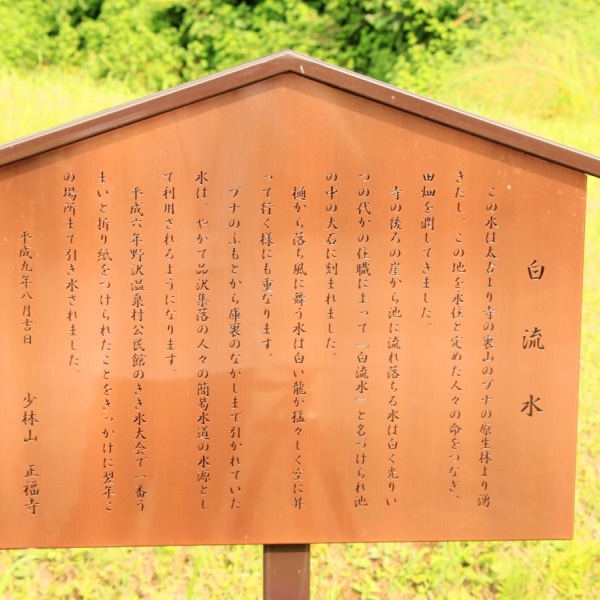 白流水
この水は太古より寺の裏山のブナの原生林より湧
きだし、この地を永住と定めた人々の命をつなぎ、
田畑を潤してきました。
寺の後ろの崖から池に流れ落ちる水は白く光りい
つの代かの住職によって『白流水』と名づけられ池
の中の大石に刻まれました。
樋から落ち風に舞う水は白い龍が猛々しく空に昇
って行く様にも重なります。
ブナのふもとから庫裏のながしまで引かれていた
水は、やがて品沢集落の人々の簡易水道の水源とし
て利用されるようになります。
平成六年野沢温泉村公民館のきき水大会で一番う
まいと折り紙をつけられたことをきっかけに翌年こ
の場所まで引き水されました。
平成九年八月吉日 少林山 正福寺